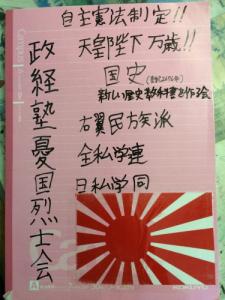 自主憲法制定!!
天皇陛下万歳!!
国史
新しい歴史教科書を作る会
右翼民族派
全私学連
日私学同
政経塾憂国烈士会
Campus
A
KOKUYO